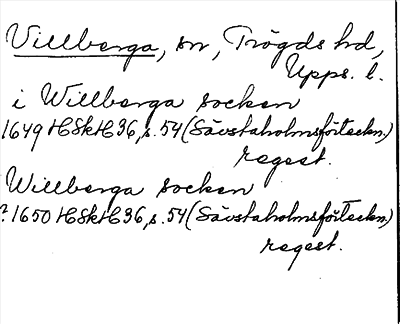 Villberga, sn, Trögds hd,
Upps. l.
i Willberga socken
1649 HSkH 36, s. 54 (Sävstaholmsförteckn.)
regest.
Willberga socken
?1650 HSkH 36, s. 54 (Sävstaholmsförteckn.)
regest.